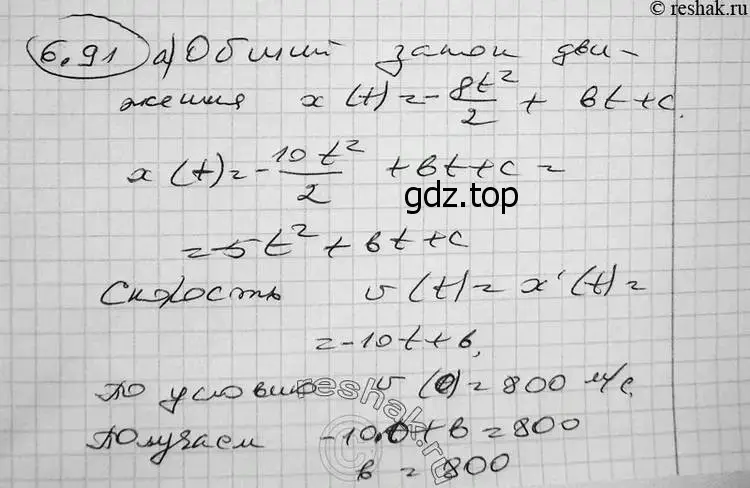 © reshak.ru
6.91 а) Общий закон дви-
жения x(t) = -gt²/2 + bt + c.
x(t) = -10t²/2 + bt + c =
gdz.top
= -5t² + bt + c
Скорость v(t) = x'(t) =
= -10t + b,
По условию v(0) = 800 м/с
reshak.ru
Получаем -10·0 + b = 800
b = 800